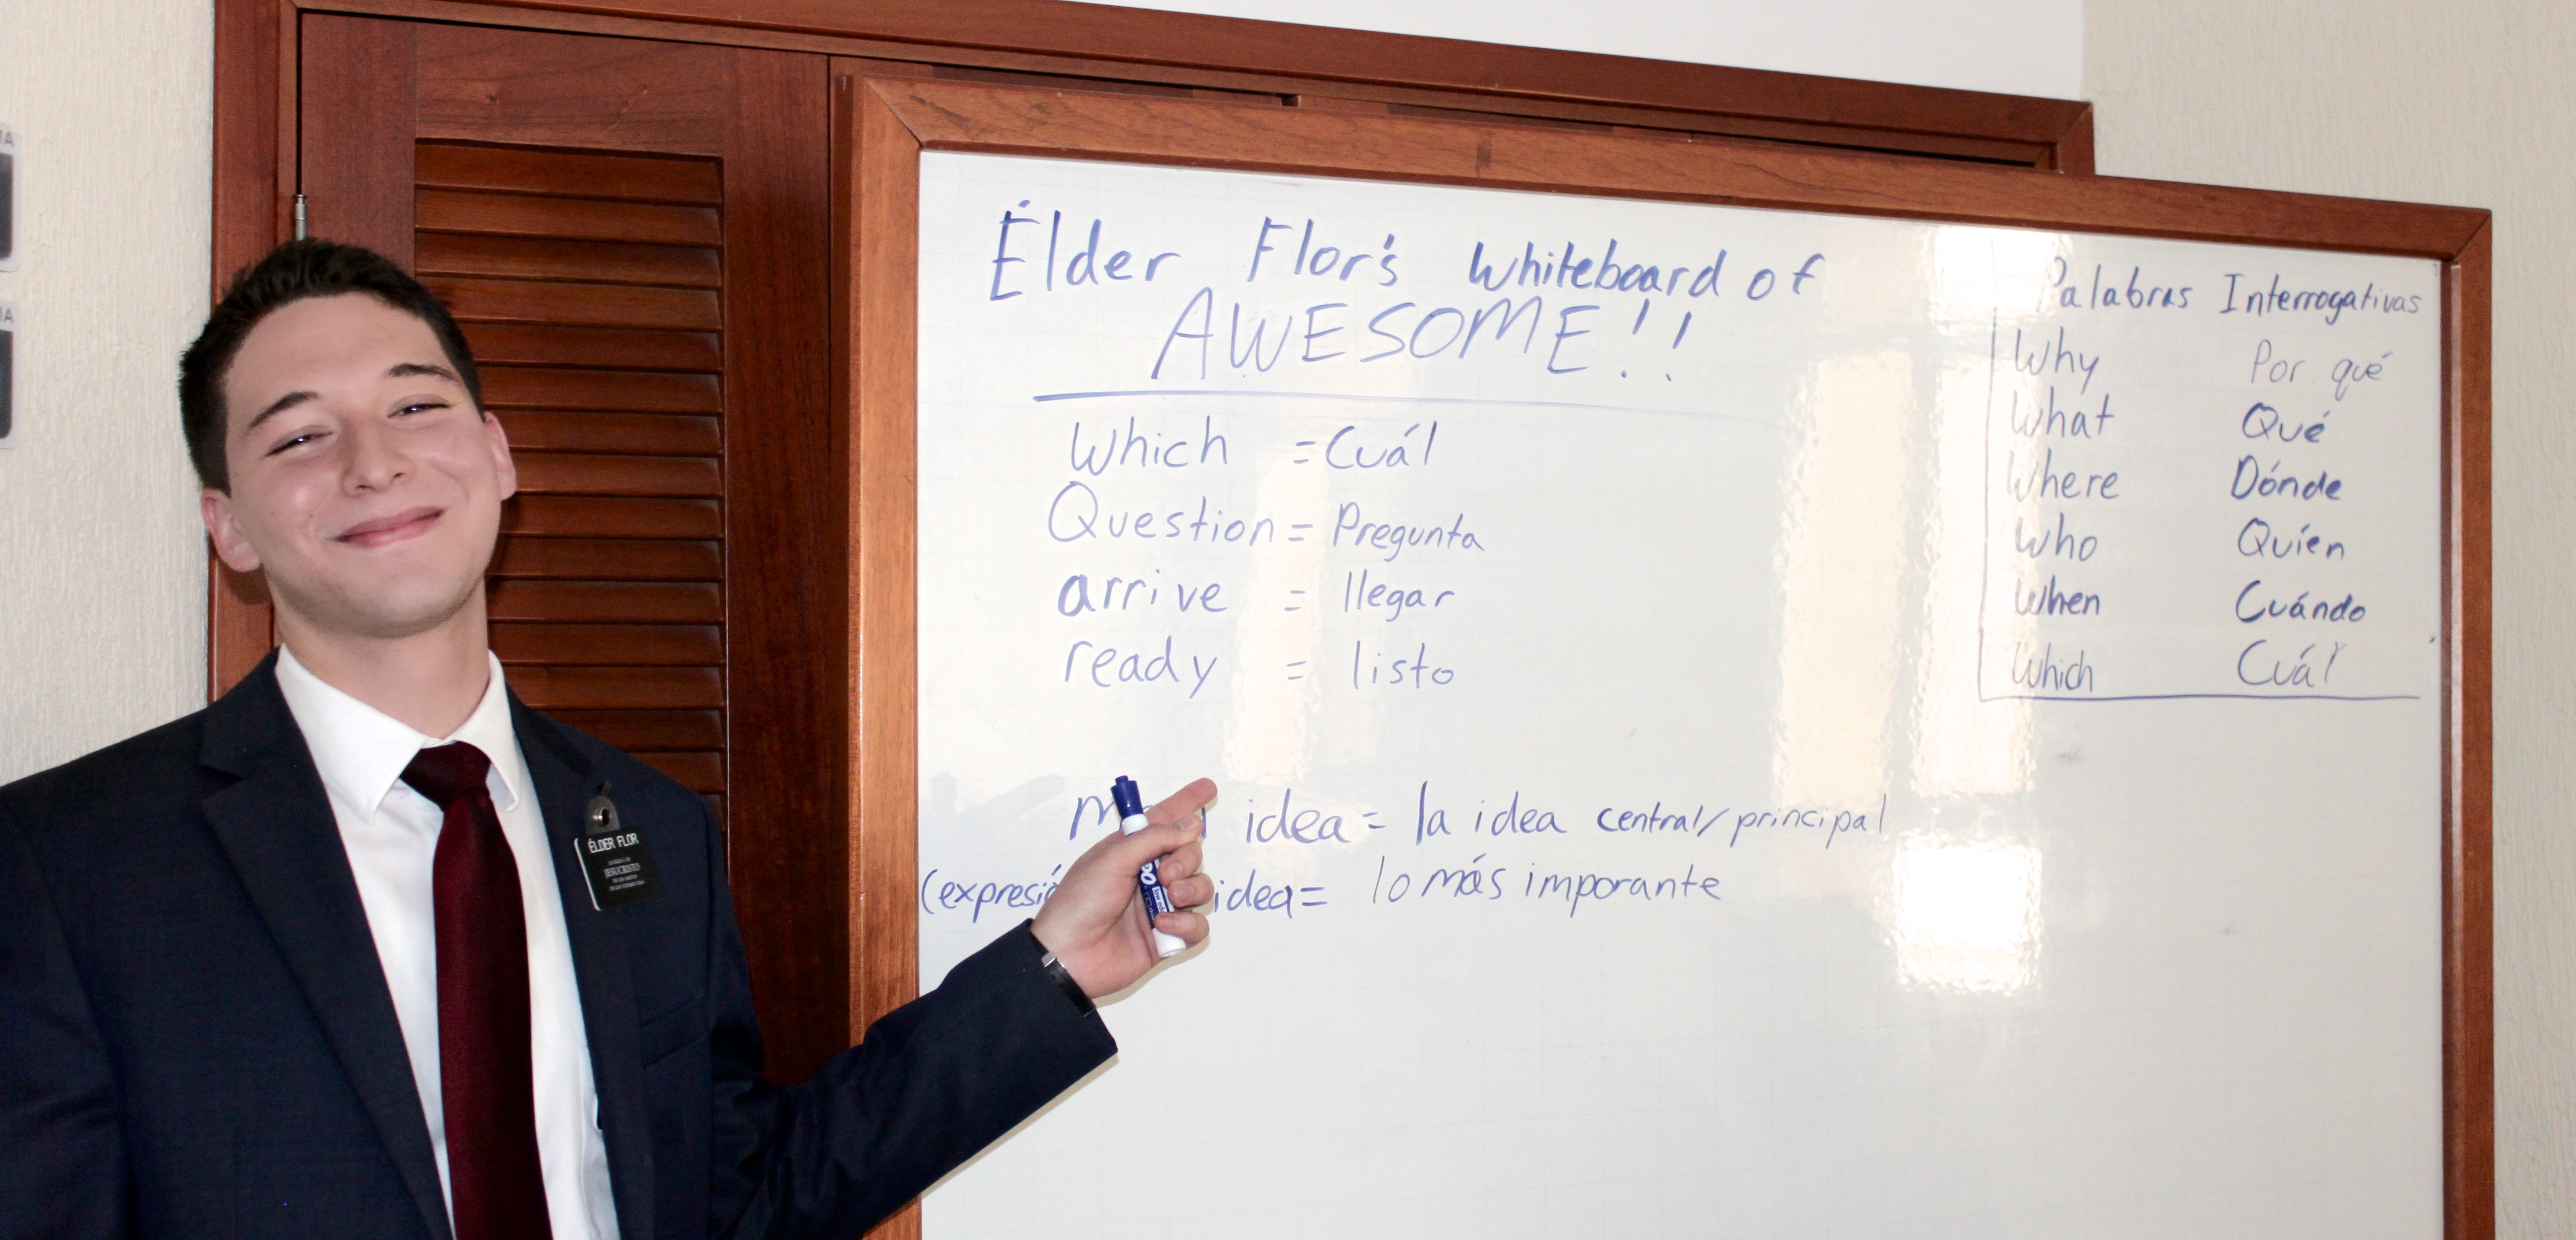 Élder Flor's Whiteboard of
AWESOME!!
Which = Cuál
Question = Pregunta
arrive = llegar
ready = listo
idea = la idea central/principal
idea = lo más imporante
Palabras Interrogativas
Why Por qué
What Qué
Where Dónde
Who Quíen
When Cuándo
Which Cuál
ÉLDER FLOR
JESUCRISTO